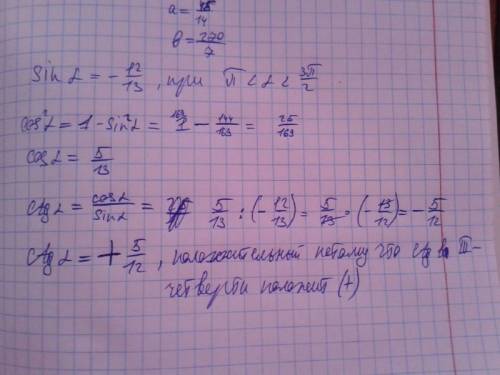 a = 45/14
b = 270/7
Sin α = - 12/13, при π < α < 3π/2.
cos²α = 1 - sin²α = 1 - 144/169 = 25/169
cos α = 5/13
ctg α = cos α/sin α = 5/13 : (- 12/13) = 5/13 · (- 13/12) = - 5/12
ctg α = + 5/12, положительный потому что ctg в III-
четверти положит (+)